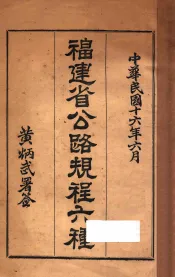 中華民國十六年六月
福建省公路規程六種
黃炳武署簽